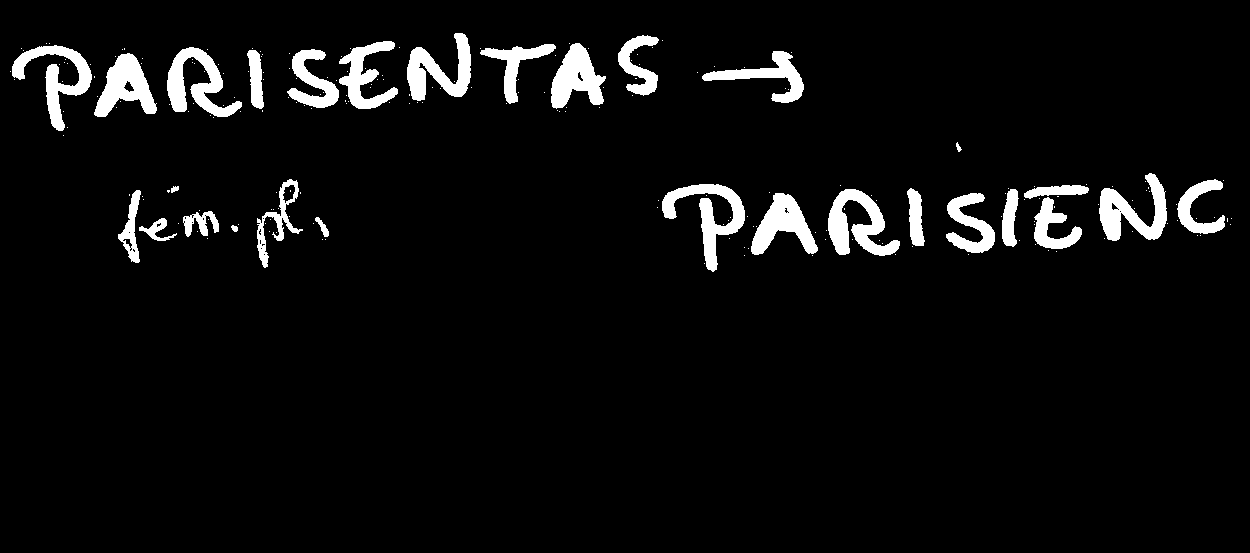 PARISENTAS →
fém. pl.
PARISIENC